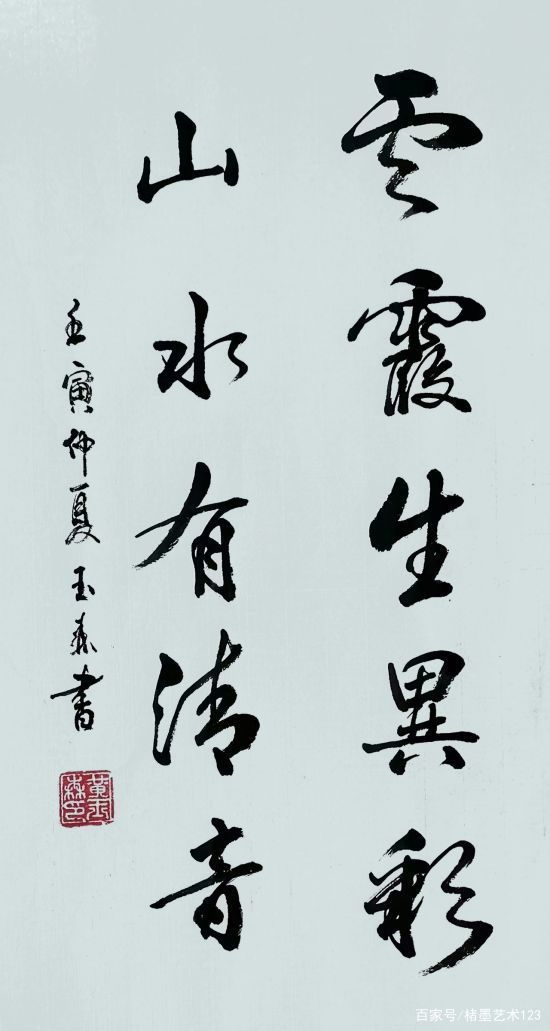 雲霞生異彩
山水有清音
壬寅仲夏玉森書
黃玉森印
百家号/楮墨艺术123